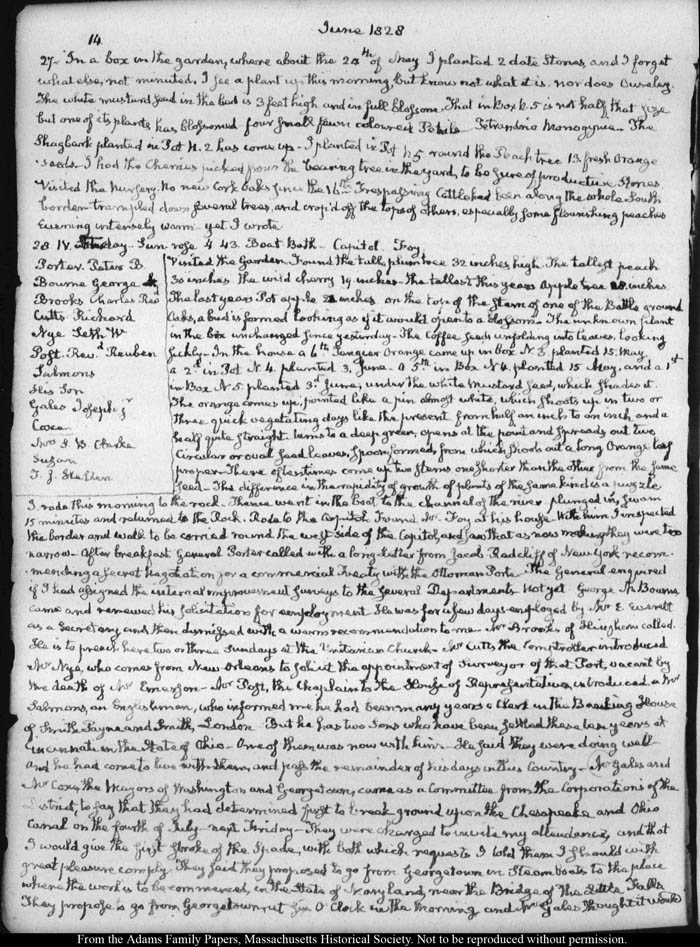 14
June 1828
27. In a box in the garden, where about the 20th of May I planted 2 date Stones, and I forget
what else, not minuted, I see a plant up this morning, but know not what it is. nor does Ouseley.
The white mustard seed in the bed is 3 feet high and in full blossom. That in Box N. 5 is not half that size
but one of its plants has blossomed four small fawn coloured Petals Tetrandria Monogynia. The
Shagbark planted in Pot N. 2 has come up. I planted in Pot N 5 round the Peach tree 13 fresh Orange
seeds. I had the Cherries picked from the bearing tree in the yard, to be sure of productive Stones
Visited the nursery. No new Cork oaks since the 16th. Trespassing Cattle had been along the whole South
border trampled down several trees, and crop'd off the tops of others, especially some flourishing peaches
Evening intensely warm yet I wrote
28. IV. Saturday. Sun rose 4 43. Boat Bath. Capitol. Foy.
Porter. Peter B
Bourne George
Brooks Charles Rev
Cutts Richard
Nye Seth W
Post. Revd. Reuben
Salmons
His Son
Gales Joseph jr
Coxe
Mrs I. B. Clarke
Susan
T. J. Hellen
Visited the Garden. Found the tallest plum tree 32 inches high. The tallest peach
30 inches. the wild cherry 19 inches. the tallest this years Apple tree inches
The last years Pot apple inches. on the top of the stem of one of the Battle ground
Oaks, a bud is formed looking as if it would open to a blossom. The unknown plant
in the box unchanged since yesterday. The Coffee seeds unfolding into leaves, looking
sickly. In the house a 4th Tangier Orange came up in box N. 3. planted 15. May
a 2d in Pot N. 4. planted 3. June. a 5th in Box N 4. planted 15. May, and a 1st
in Box N. 5. planted 3d June, under the white Mustard seed, which shades it.
The orange comes up, pointed like a pin almost white, which shoots up in two or
three quick vegetating days like the present from half an inch to an inch and a
half quite straight. turns to a deep green, opens at the point and spreads out two
Circular or oval seed leaves, spoon formed, from which shoots out a long Orange leaf
proper. There oftentimes come up two stems one shorter than the other from the same
seed. The difference in the rapidity of growth of plants of the same kind is a puzzle
I rode this morning to the rock. Thence went in the boat to the channel of the river plunged in, swam
15 minutes and returned to the Rock. Rode to the Capitol. Found Mr Foy at his house. With him I inspected
the border and walk to be carried round the west side of the Capitol, and saw that as now making they were too
narrow. After breakfast General Porter called with a long letter from Jacob Radcliff of New York recom-
mending a secret negotiation for a commercial Treaty with the Ottoman Porte. The General enquired
if I had assigned the internal improvement surveys to the several Departments. Not yet. George M. Bourne
came and renewed his solicitation for employment. He was for a few days employed by Mr E. Everett
as a Secretary, and then dismissed with a warm recommendation to me. Mr Brooks of Hingham called.
He is to preach here two or three Sundays at the Unitarian Church. Mr Cutts the Comptroller introduced
Mr Nye, who comes from New Orleans to solicit the appointment of Surveyor of that Port, vacant by
the death of Mr Emerson. Mr Post, the Chaplain to the House of Representatives, introduced a Mr
Salmons, an Englishman, who informed me he had been many years a Clerk in the Banking House
of Smith Payne and Smith, London. But he has two Sons who have been settled these ten years at
Cincinnati in the State of Ohio. One of them was now with him. He said they were doing well
and he had come to live with them, and pass the remainder of his days in this Country. Mr Gales and
Mr Coxe the Mayors of Washington and Georgetown, came as a Committee from the Corporations of the
District, to say that they had determined first to break ground upon the Chesapeake and Ohio
Canal on the fourth of July next Friday. They were charged to invite my attendance, and that
I would give the first stroke of the Spade, with both which requests I told them I should with
great pleasure comply. They said they proposed to go from Georgetown in Steam boats to the place
where the work is to be commenced, in the State of Maryland, near the Bridge of the Little Falls
They propose to go from Georgetown, at six O'Clock in the Morning and Mr Gales thought it would
From the Adams Family Papers, Massachusetts Historical Society. Not to be reproduced without permission.